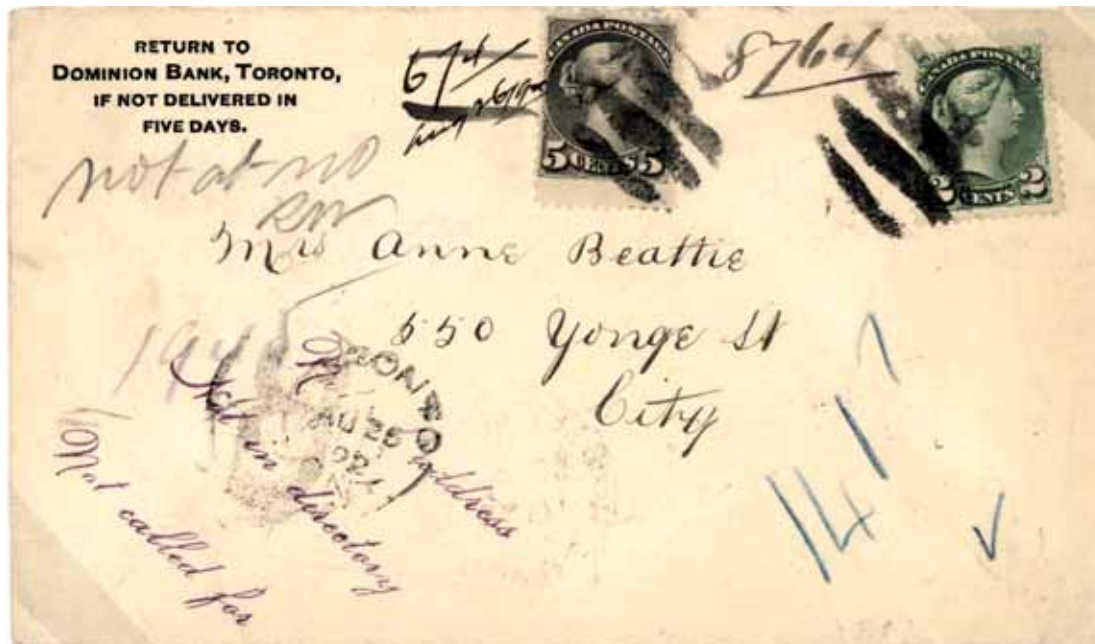 RETURN TO
DOMINION BANK, TORONTO,
IF NOT DELIVERED IN
FIVE DAYS.
CANADA POSTAGE
5 CENTS 5
8764
CANADA POSTAGE
2 CENTS 2
not at no
Mrs Anne Beattie
550 Yonge St
City
AU 25
92
address
Not in directory
Not called for
14